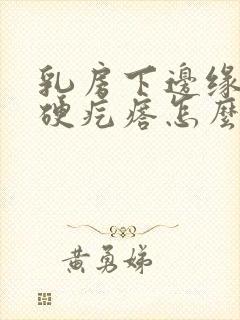 乳房下邊缘
硬疙瘩怎麼
黄勇娣